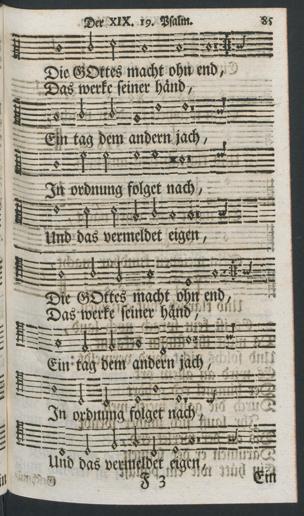 Der XIX. 19. Psalm. 85
Die GOttes macht ohn end,
Das werke seiner händ,
Ein tag dem andern jach,
In ordnung folget nach,
Und das vermeldet eigen,
Die GOttes macht ohn end,
Das werke seiner händ
Ein tag dem andern jach,
In ordnung folget nach,
Und das vermeldet eigen,
F 3 Ein